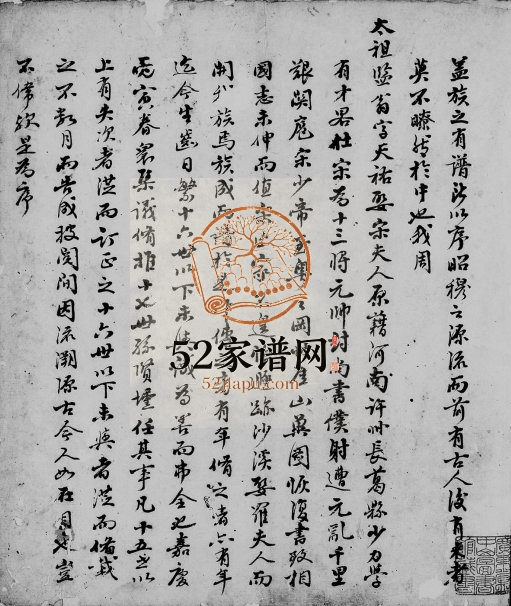 盖族之有譜所以序昭穆之源流而前有古人後有来者
莫不瞭然於中也我周
太祖監翁字天祐娶宋夫人原籍河南許州長葛縣少力學
有才畧壮宋為十三将元帅尚書僕射遭元亂千里
艱闢扈宋少帝至 岡 崖山冀圖恢復書致相
國志未伸而值宋 遂 跡沙溪娶羅夫人而
開 族焉族成而譜 有年脩之者亦有年
迄今生齒日繁十六世以下未 為善而弗全也嘉慶
丙寅春衆集議脩推十七世孫 任其事凡十五 以
上有失次者從而訂正之十六世以下未登者從而備載
之不数月而告成披閲間因流溯源古今人如在目也豈
不偉欤是為序
52家谱网
52jiapu.com